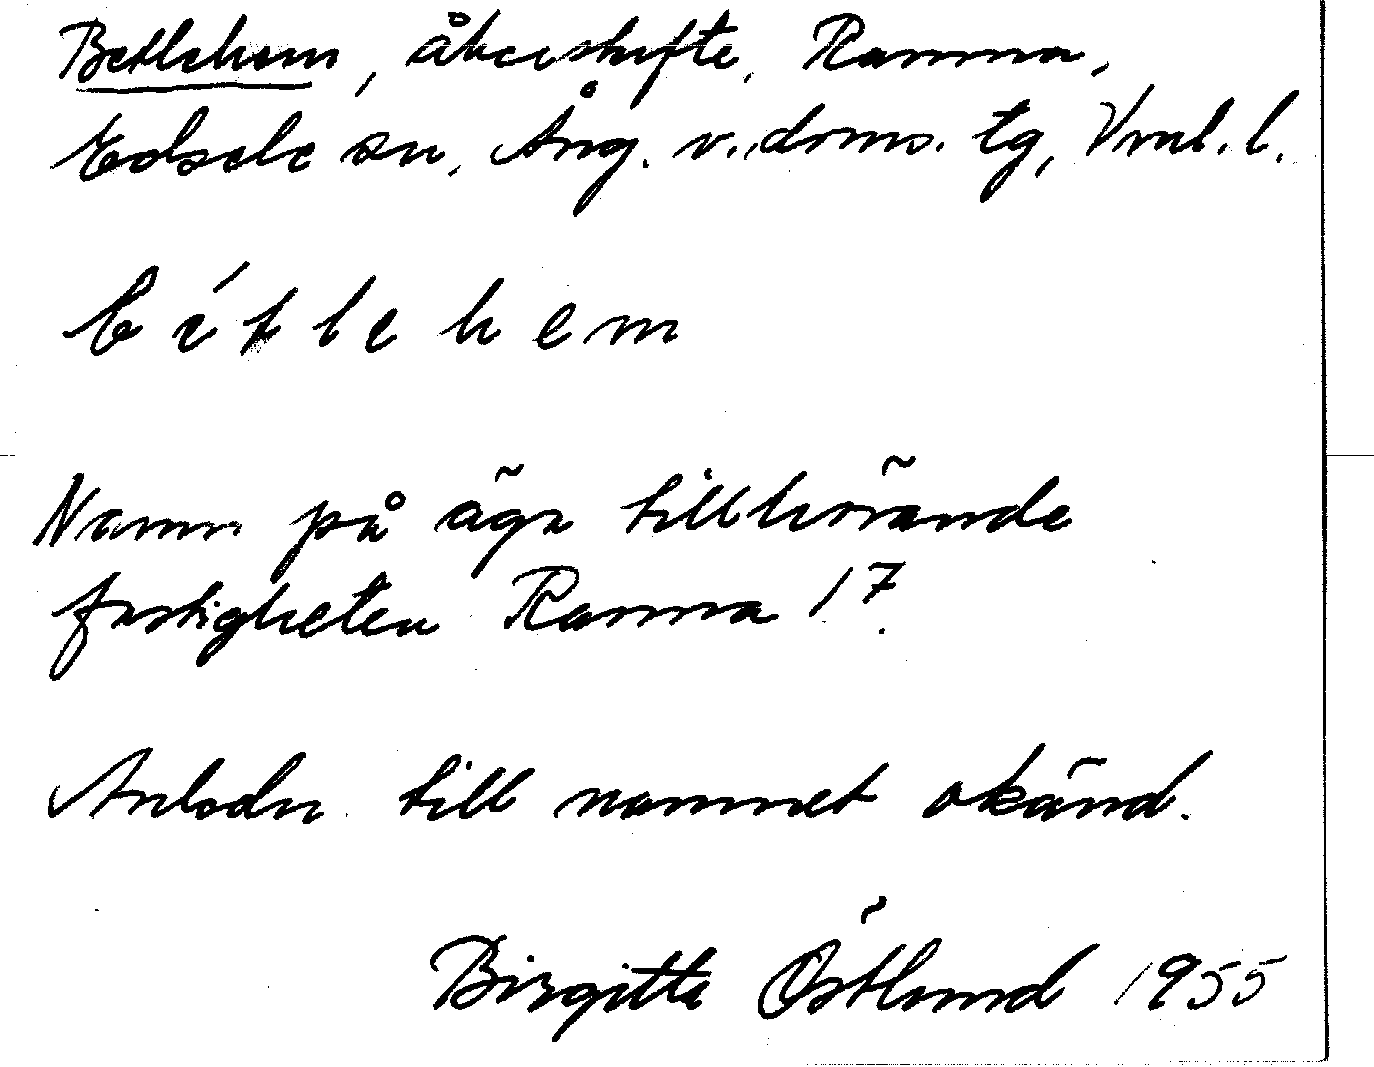 Betlehem, åkerskifte, Ramna,
Edsele sn, Ång. v. doms. tg, Vnl. l.
bétlehem
Namn på äga tillhörande
fastigheten Ramna 17.
Anledn. till namnet okänd.
Birgitta Östlund 1955